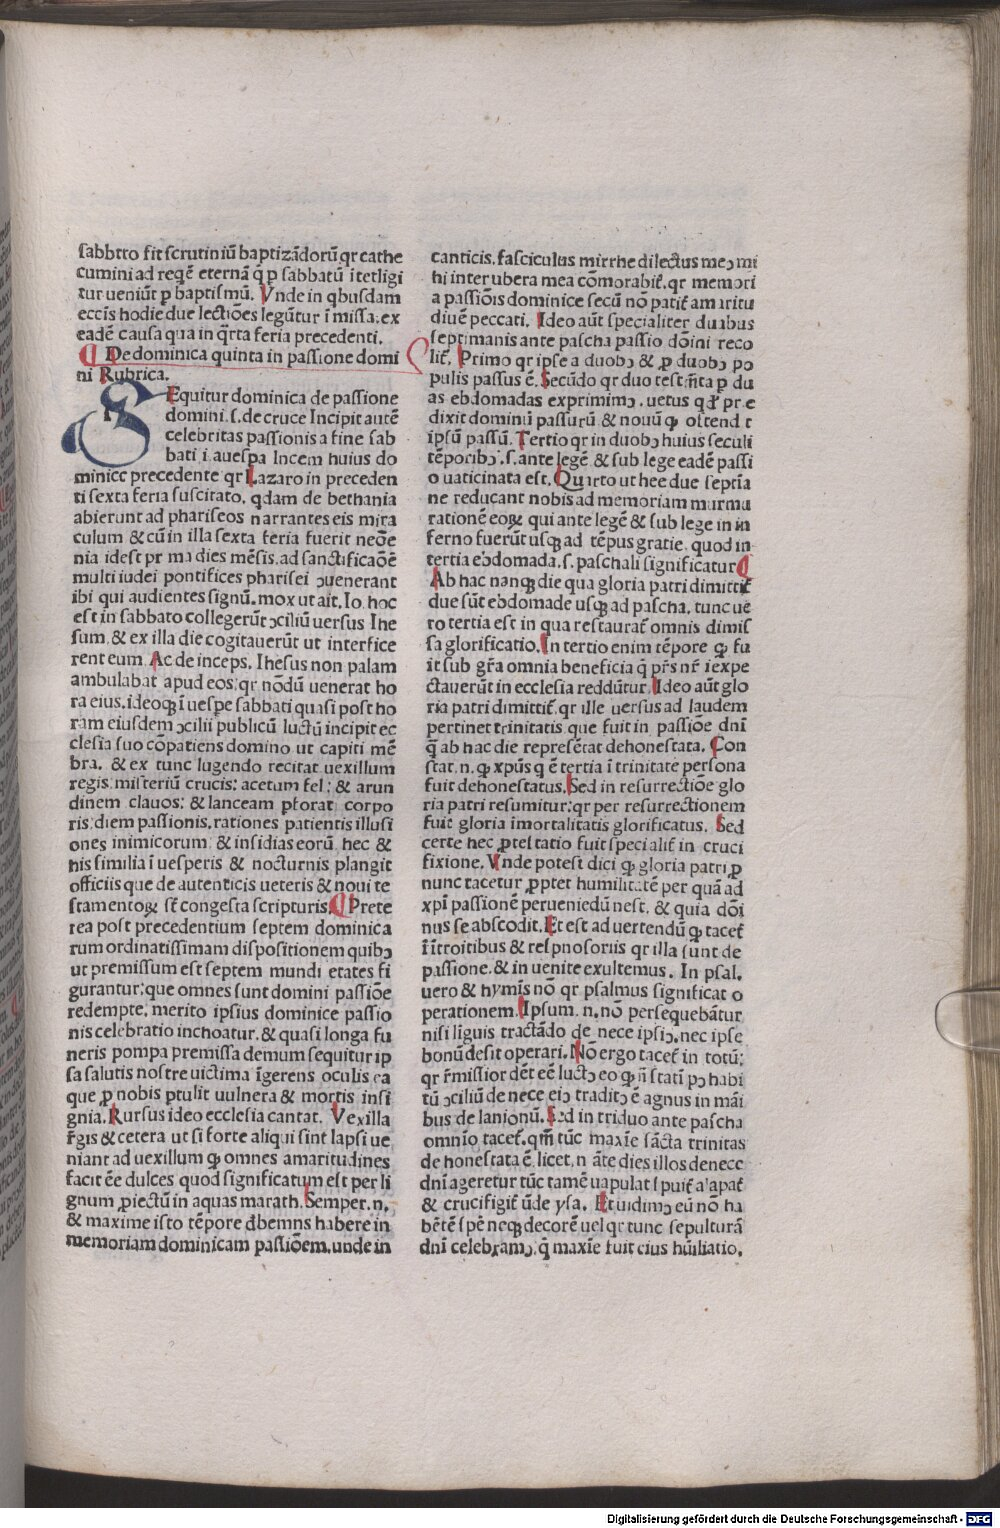 sabbtto fit scrutiniū baptizādorū qr cathe
cumini ad reqē eternā q̄ p sabbatū ītetligi
tur ueniūt p baptismū. Vnde in qbusdam
ecclīs hodie due lectiōes legūtur ī missa: ex
eadē causa qua in q̄rta feria precedenti.
¶ De dominica quinta in passione domi
ni Rubrica.
SEquitur dominica de passione
domini .s. de cruce Incipit autē
celebritas passionis a fine sab
bati .i. a uespa Incem huius do
minicc precedente qr Lazaro in preceden
ti sexta feria suscitato, qdam de bethania
abierunt ad phariseos narrantes eis mira
culum & cū in illa sexta feria fuerit neōe
nia idest pr ma dies mēsis, ad sanctificaōē
multi iudei pontifices pharisei ↄuenerant
ibi qui audientes signū, mox ut ait. Io. hoc
est in sabbato collegerūt ↄciliū uersus Ihe
sum, & ex illa die cogitauerūt ut interfice
rent eum. Ac deinceps, Ihesus non palam
ambulabat apud eos: qr nōdū uenerat ho
ra eius, ideoqꝫ ī uespe sabbati quasi post ho
ram eiusdem ↄcilii publicū luctū incipit ec
clesia suo cōpatiens domino ut capiti mē
bra. & ex tunc lugendo recitat uexillum
regis: misteriū crucis: acetum fel: & arun
dinem clauos: & lanceam pforat corpo
ris: diem passionis, rationes patientis illusi
ones inimicorum: & insidias eorū, hec &
his similia ī uesperis & nocturnis plangit
officiis que de autenticis ueteris & noui te
stamentoꝝ sūt congesta scripturis. ¶ Prete
rea post precedentium septem dominica
rum ordinatissimam dispositionem quibꝰ
ut premissum est septem mundi etates fi
gurantur: que omnes sunt domini passiōe
redempte, merito ipsius dominice passio
nis celebratio inchoatur, & quasi longa fu
neris pompa premissa demum sequitur ip
sa salutis nostre uictima īgerens oculis ea
que ꝓ nobis ptulit uulnera & mortis insi
gnia. Rursus ideo ecclesia cantat. Vexilla
r̄gis & cetera ut si forte aliqui sint lapsi ue
niant ad uexillum ꝙ omnes amaritudines
facit ēe dulces quod significatum est per li
gnum ꝓiectū in aquas marath. Semper .n.
& maxime isto tēpore dbemns habere in
memoriam dominicam passiōem, unde in
canticis, fasciculus mirrhe dilectus meꝰ mi
hi inter ubera mea cōmorabit̄, qr memori
a passiōis dominice secū nō patit̄ amaritu
diuē peccati. Ideo aūt specialiter duabus
septimanis ante pascha passio dōini reco
lit̄. Primo qr ipse a duobꝰ & ꝓ duobꝰ po
pulis passus ē. Secūdo qr duo test̄mta p du
as ebdomadas exprimimꝰ, uetus qd̄ pre
dixit dominū passurū & nouū ꝙ ostendt
ipsū passū. Tertio qr in duobꝰ huius seculi
tēporibꝰ .s. ante legē & sub lege eadē passi
o uaticinata est. Quarto ut hee due septīa
ne reducant nobis ad memoriam murmu
rationē eoꝝ qui ante legē & sub lege in in
ferno fuerūt usqꝫ ad tēpus gratie, quod in
tertia ebdomada .s. paschali significatur ¶
Ab hac nanqꝫ die qua gloria patri dimittit̄
due sūt ebdomade usqꝫ ad pascha, tunc ue
ro tertia est in qua restaurat̄ omnis dimis
sa glorificatio. In tertio enim tēpore ꝙ fu
it sub gr̄a omnia beneficia q̄ pr̄s nr̄i expe
ctauerūt in ecclesia reddūtur. Ideo aūt glo
ria patri dimittit̄, qr ille uersus ad laudem
pertinet trinitatis que fuit in passiōe dnī
q̄ ab hac die represētat dehonestata. Con
stat .n. ꝙ xpūs q ē tertia ī trinitate persona
fuit dehonestatus. Sed in resurrectiōe glo
ria patri resumitur: qr per resurrectionem
fuit gloria īmortalitatis glorificatus. Sed
certe hec ꝓtestatio fuit specialit̄ in cruci
fixione. Vnde potest dici ꝙ gloria patri ꝓ
nunc tacetur ꝓpter humilitatē per quā ad
xpī passionē perueniedū nest, & quia dōi
nus se abscodit. Et est aduertendū ꝙ tacet̄
ī ītroitibus & respnosoriis qr illa sunt de
passione, & in uenite exultemus. In psal.
uero & hymīs nō qr psalmus significat o
perationem. Ipsum .n. nō persequebātur
nisi liguis tractādo de nece ipsiꝰ, nec ipse
bonū desit operari. Nō ergo tacet̄ in totū:
qr r̄missior dēt eē luctꝰ eo ꝙ n̄ statī pꝰ habi
tū ↄciliū de nece eiꝰ traditꝰ ē agnus in māi
bus de lanionū. Sed in triduo ante pascha
omnīo tacet̄, qm̄ tūc maxīe sācta trinitas
dehonestata ē, licet .n. āte dies illos de necc
dnī ageretur tūc tamē uapulat spuit̄ alapat̄
& crucifigit̄ ūde ysa. Et uidimꝰ eū nō ha
bētē spē neqꝫ decorē uel qr tunc sepulturā
dnī celebramꝰ, q̄ maxīe fuit eius hūiliatio.
Digitalisierung gefördert durch die Deutsche Forschungsgemeinschaft - DFG